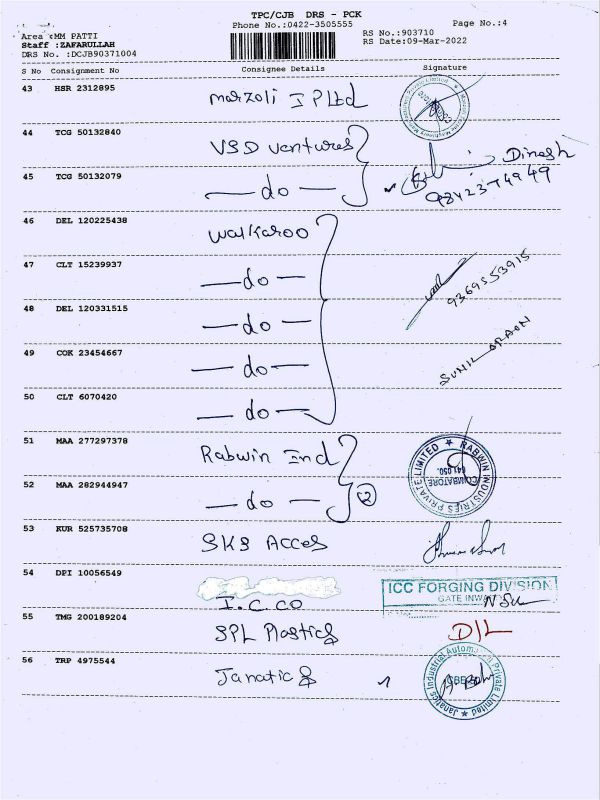 TPC/CJB DRS - PCK
Phone No.:0422-3505555
Page No.:4
Area :MM PATTI
Staff :ZAFARULLAH
DRS No. :DCJB90371004
RS No.:903710
RS Date:09-Mar-2022
S No Consignment No Consignee Details Signature
43 HSR 2312895 Marzoli I P Ltd
44 TCG 50132840 VSD ventures
45 TCG 50132079 — do — Dinesh
9842374949
46 DEL 120225438 Walkaroo
47 CLT 15239937 — do — 9369553915
48 DEL 120331515 — do —
49 COK 23454667 — do — SUNIL ORAON
50 CLT 6070420 — do —
51 MAA 277297378 Rabwin Ind
RABWIN INDUSTRIES PRIVATE LIMITED
COIMBATORE
641 050.
52 MAA 282944947 — do — 2
53 KUR 525735708 SKS Acces
54 DPI 10056549 I.C.CO
ICC FORGING DIVISION
GATE INW
55 TMG 200189204 SPL Plastics D/L
56 TRP 4975544 Janatics
Janatics Industrial Automation Private Limited
CBE